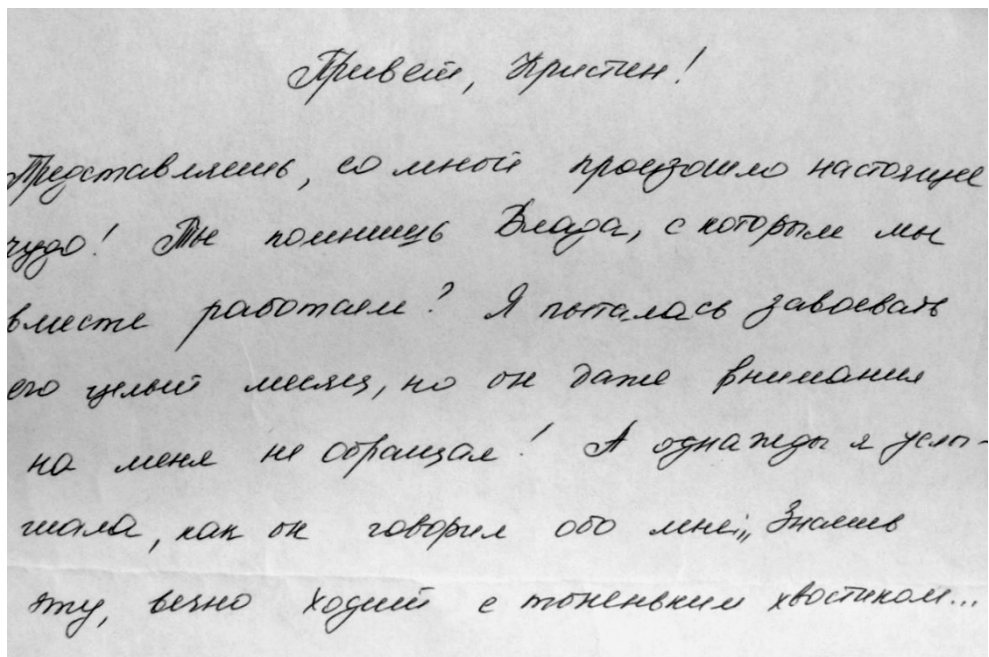 Привет, Кристин!
Представляешь, со мной произошло настоящее
чудо! Ты помнишь Влада, с которым мы
вместе работаем? Я пыталась завоевать
его целый месяц, но он даже внимания
на меня не обращал! А однажды я услы-
шала, как он говорил обо мне: „Знаешь
эту, вечно ходит с тоненьким хвостиком...